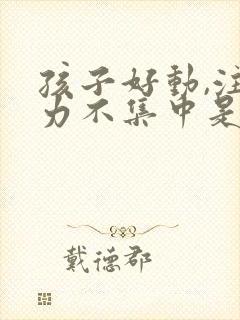 孩子好動,注
力不集中是
戴德郡